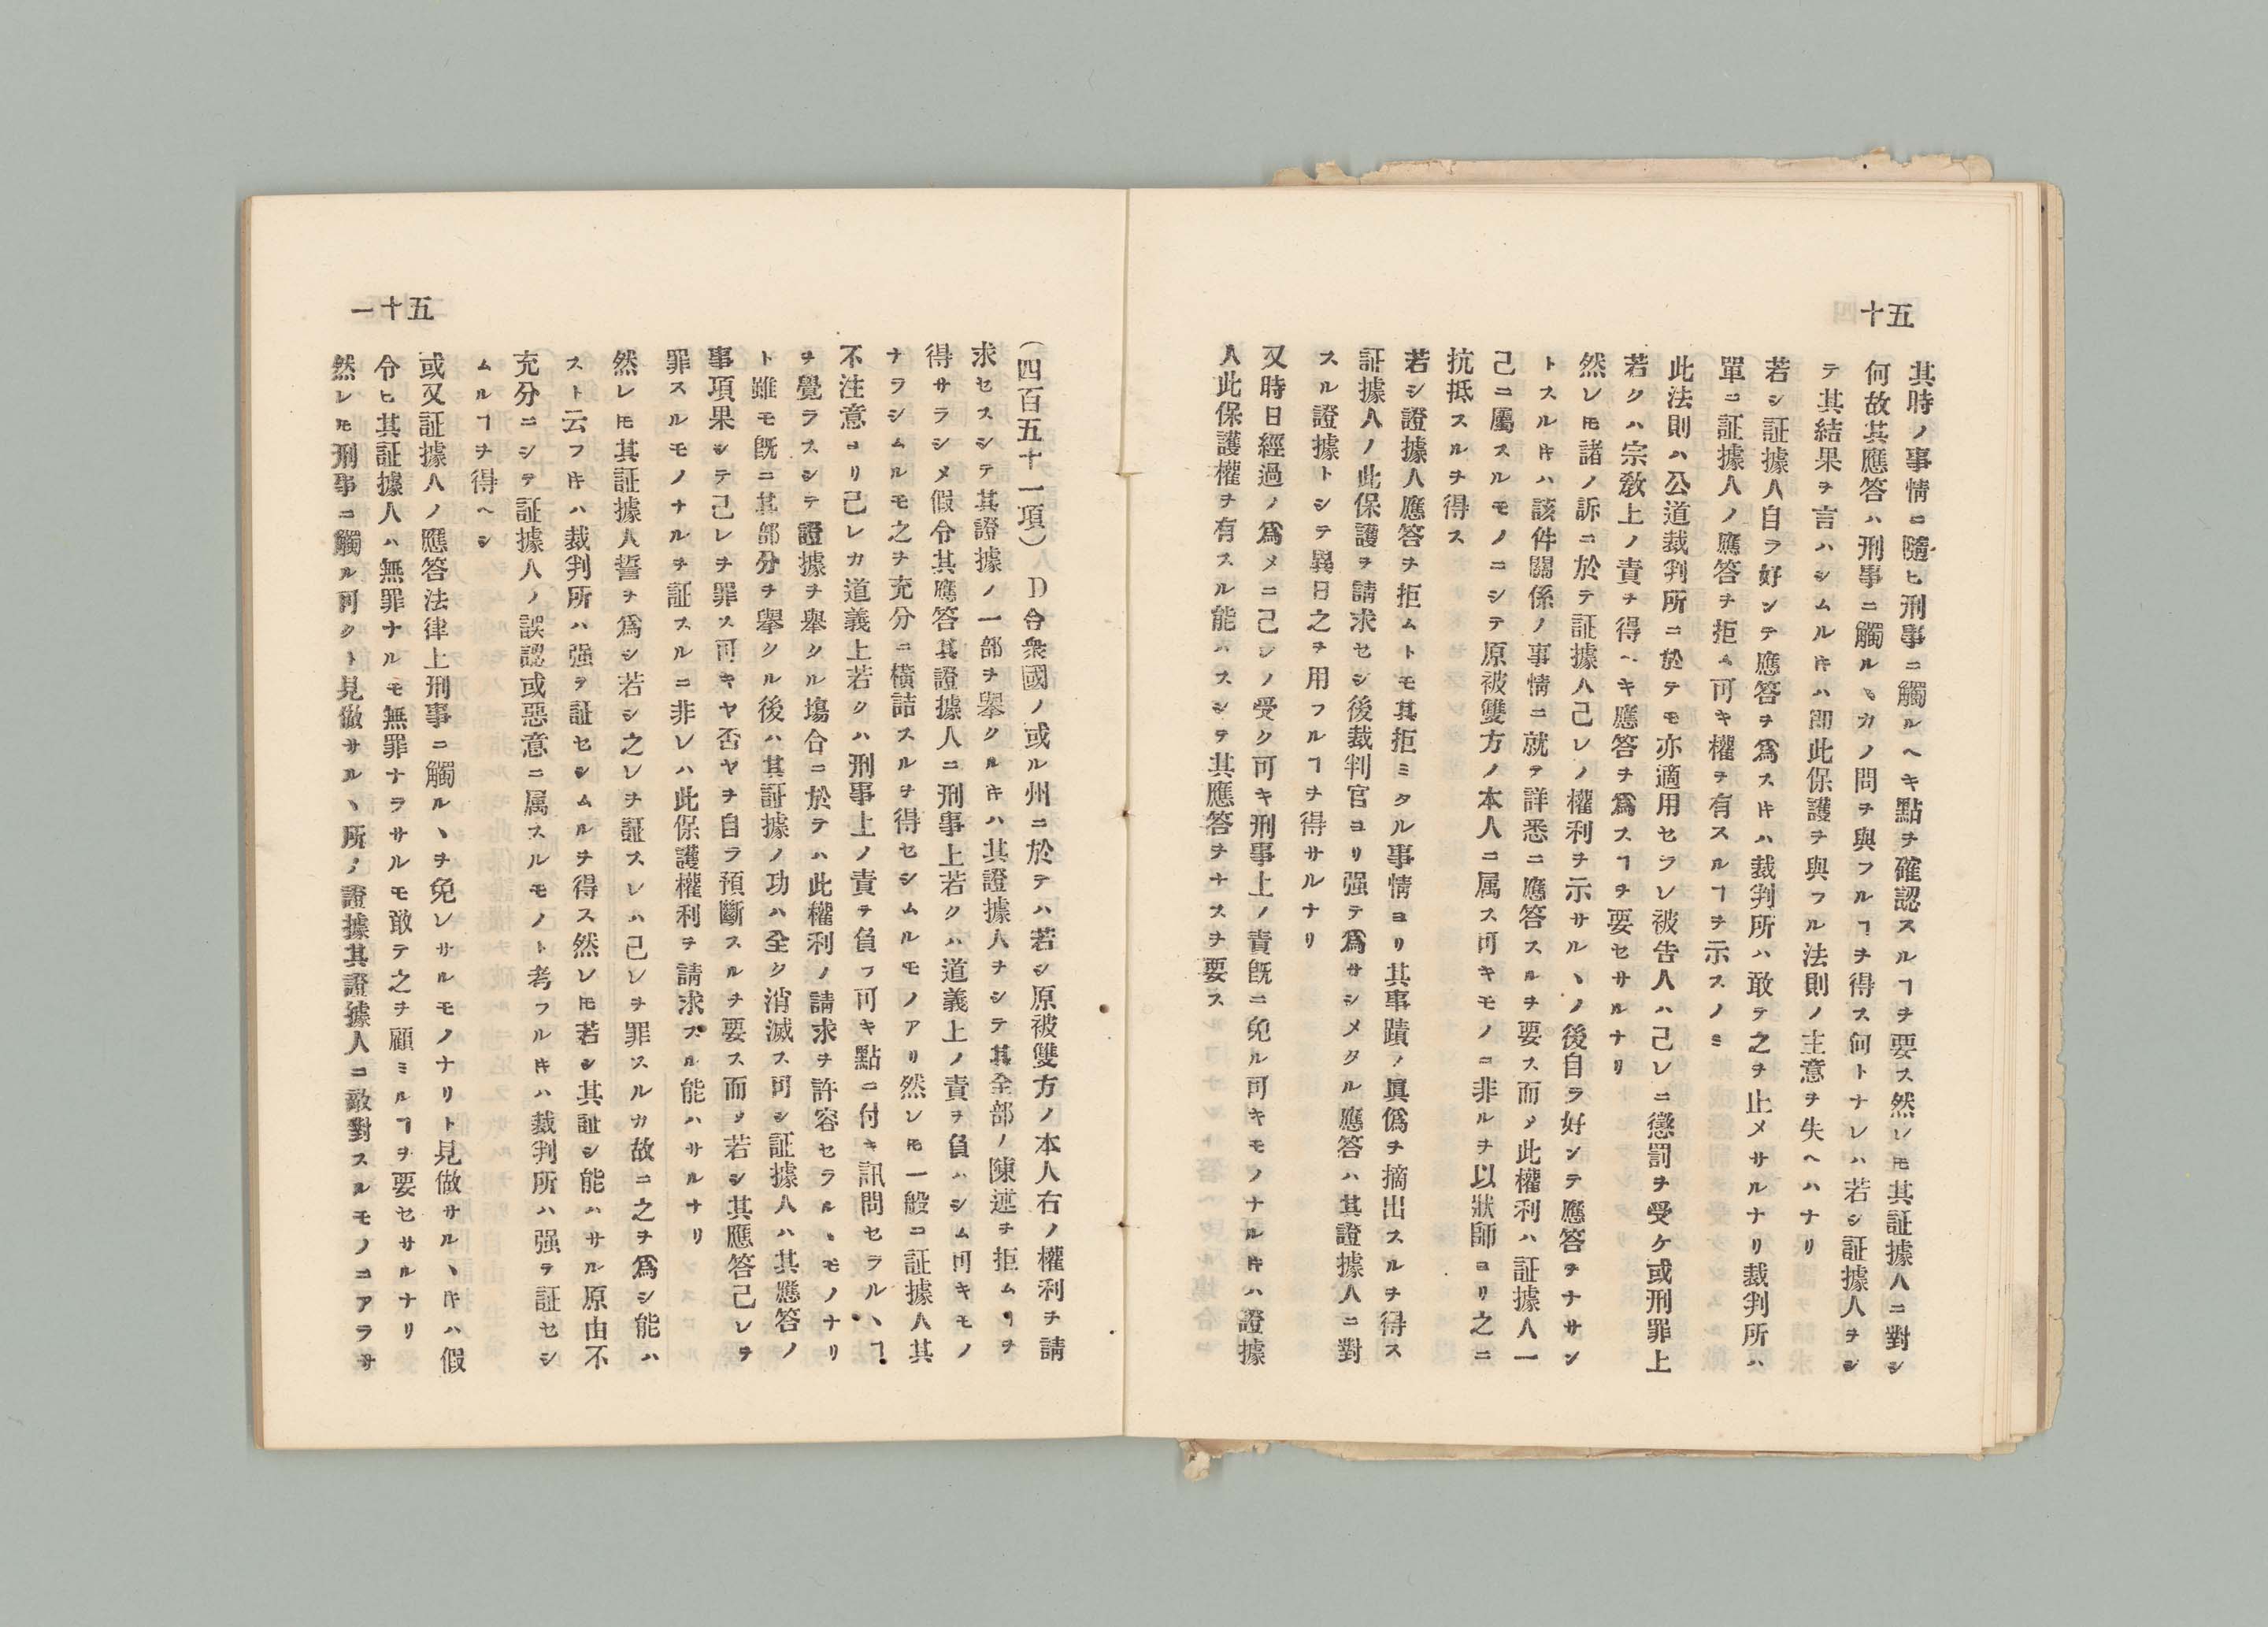 五十
其時ノ事情ニ隨ヒ刑事ニ觸ルヘキ點ヲ確認スルヿヲ要ス然レ𪜈其証據人ニ對シ
何故其應答ハ刑事ニ觸ルヽカノ問ヲ與フルヿヲ得ス何トナレハ若シ証據人ヲシ
テ其結果ヲ言ハシムル𪜈ハ卽此保護ヲ與フル法則ノ主意ヲ失ヘハナリ
若シ証據人自ラ好ンテ應答ヲ爲ス𪜈ハ裁判所ハ敢テ之ヲ止メサルナリ裁判所ハ
單ニ証據人ノ應答ヲ拒ム可キ權ヲ有スルヿヲ示スノミ
此法則ハ公道裁判所ニ於テモ亦適用セラレ被告人ハ己レニ懲罰ヲ受ケ或刑罪上
若クハ宗敎上ノ責ヲ得ヘキ應答ヲ爲スヿヲ要セサルナリ
然レ𪜈諸ノ訴ニ於テ証據人己レノ權利ヲ示サルヽノ後自ラ好ンテ應答ヲナサン
トスル𪜈ハ該件關係ノ事情ニ就テ詳悉ニ應答スルヲ要ス而メ此權利ハ証據人一
己ニ屬スルモノニシテ原被雙方ノ本人ニ属ス可キモノニ非ルヲ以狀師ヨリ之ニ
抗抵スルヲ得ス
若シ證據人應答ヲ拒ムトモ其拒ミタル事情ヨリ其事蹟ノ眞僞ヲ摘出スルヲ得ス
証據人ノ此保護ヲ請求セシ後裁判官ヨリ强テ爲サシメタル應答ハ其證據人ニ對
スル證據トシテ異日之ヲ用フルヿヲ得サルナリ
又時日經過ノ爲メニ己レノ受ク可キ刑事上ノ責既ニ免ル可キモノナル𪜈ハ證據
人此保護權ヲ有スル能ハスシテ其應答ヲナスヲ要ス
五十一
（四百五十一項）　D合衆國ノ或ル州ニ於テハ若シ原被雙方ノ本人右ノ權利ヲ請
求セスシテ其證據ノ一部ヲ擧クル𪜈ハ其證據人ヲシテ其全部ノ陳述ヲ拒ムヿヲ
得サラシメ假令其應答其證據人ニ刑事上若クハ道義上ノ責ヲ負ハシム可キモノ
ナラシムルモ之ヲ充分ニ橫詰スルヲ得セシムルモノアリ然レ𪜈一般ニ証據人其
不注意ヨリ己レカ道義上若クハ刑事上ノ責ヲ負フ可キ點ニ付キ訊問セラルヽヿ
ヲ覺ラスシテ證據ヲ舉クル塲合ニ於テハ此權利ノ請求ヲ許容セラルヽモノナリ
ト雖モ既ニ其部分ヲ擧クル後ハ其証據ノ功ハ全ク消滅ス可シ証據人ハ其應答ノ
事項果シテ己レヲ罪ス可キヤ否ヤヲ自ラ預斷スルヲ要ス而メ若シ其應答己レヲ
罪スルモノナルヲ証スルニ非レハ此保護權利ヲ請求スル能ハサルナリ
然レ𪜈其証據人誓ヲ爲シ若シ之レヲ証スレハ己レヲ罪スルカ故ニ之ヲ爲シ能ハ
スト云フ𪜈ハ裁判所ハ强テ証セシムルヲ得ス然レ𪜈若シ其証シ能ハサル原由不
充分ニシテ証據人ノ誤認或惡意ニ属スルモノト考フル𪜈ハ裁判所ハ强テ証セシ
ムルヿヲ得ヘシ
或又証據人ノ應答法律上刑事ニ觸ルヽヲ免レサルモノナリト見做サルヽ𪜈ハ假
令ヒ其証據人ハ無罪ナルモ無罪ナラサルモ敢テ之ヲ顧ミルヿヲ要セサルナリ
然レ𪜈刑事ニ觸ル可クト見做サルヽ所ノ證據其證據人ニ敵對スルモノニアラサ